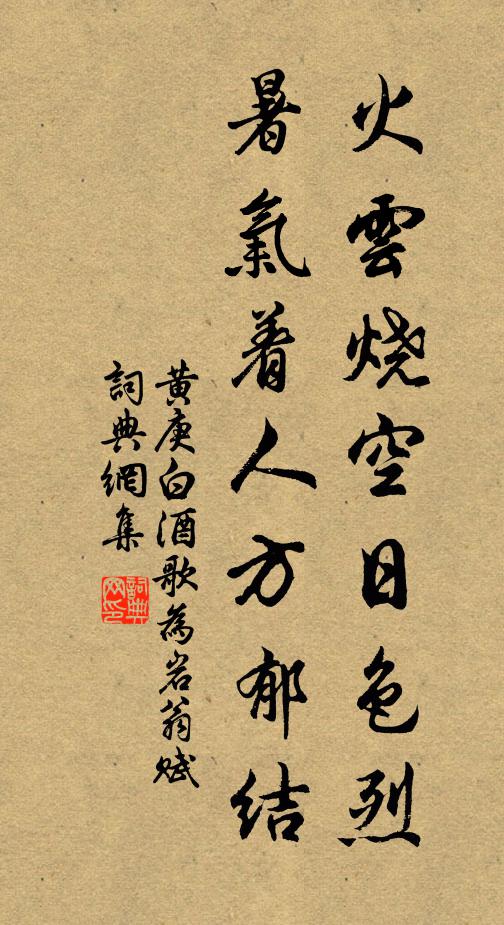 火雲燒空日色烈
暑氣着人方郁结
黄庚白酒歌為岩翁赋
詞典網集
詞典網印